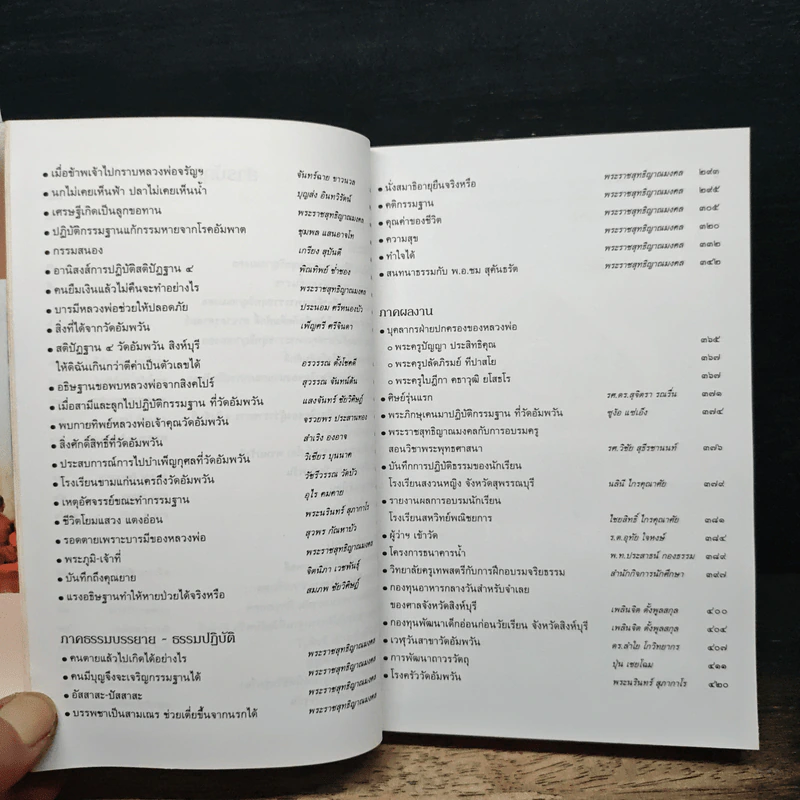 • เมื่อข้าพเจ้าไปกราบหลวงพ่อจรัญฯ จันทร์ฉาย ชาวนวล
• นกไม่เคยเห็นฟ้า ปลาไม่เคยเห็นน้ำ บุญส่ง อินทวิรัตน์
• เศรษฐีเกิดเป็นลูกขอทาน พระราชสุทธิญาณมงคล
• ปฏิบัติกรรมฐานแก้กรรมหายจากโรคอัมพาต ชุมพล แสนอาจโท
• กรรมสนอง เกรียง สุบันดี
• อานิสงส์การปฏิบัติสติปัฏฐาน ๔ พิณทิพย์ ช่ำชอง
• คนยืมเงินแล้วไม่คืนจะทำอย่างไร พระราชสุทธิญาณมงคล
• บารมีหลวงพ่อช่วยให้ปลอดภัย ประนอม ศรีหนองบัว
• สิ่งที่ได้จากวัดอัมพวัน เพ็ญศรี ศรีจินดา
• สติปัฏฐาน ๔ วัดอัมพวัน สิงห์บุรี
ให้ดิฉันเกินกว่าตีค่าเป็นตัวเลขได้ อรวรรณ ตั้งโชคดี
• อธิษฐานขอพบหลวงพ่อจากสิงคโปร์ สุวรรณ จันทน์ต้น
• เมื่อสามีและลูกไปปฏิบัติกรรมฐาน ที่วัดอัมพวัน แสงจันทร์ ชัยวิศิษฎ์
• พบกายทิพย์หลวงพ่อเจ้าคุณวัดอัมพวัน จรวยพร ประสานทอง
• สิ่งศักดิ์สิทธิ์ที่วัดอัมพวัน สำเริง องอาจ
• ประสบการณ์การไปบำเพ็ญกุศลที่วัดอัมพวัน วิเชียร บุนนาค
• โรงเรียนขามแก่นนครถึงวัดอัมพวัน วัชรีวรรณ วัดบัว
• เหตุอัศจรรย์ขณะทำกรรมฐาน อุไร คมคาย
• ชีวิตโยมแสวง แตงอ่อน พระนรินทร์ สุภากาโร
• รอดตายเพราะบารมีของหลวงพ่อ สุวพร กัณหาบัว
• พระภูมิ-เจ้าที่ พระราชสุทธิญาณมงคล
• บันทึกถึงคุณยาย จิตนิภา เวชพันธุ์
• แรงอธิษฐานทำให้หายป่วยได้จริงหรือ สมภพ ชัยวิศิษฎ์
ภาคธรรมบรรยาย - ธรรมปฏิบัติ
• คนตายแล้วไปเกิดได้อย่างไร พระราชสุทธิญาณมงคล
• คนมีบุญจึงจะเจริญกรรมฐานได้ พระราชสุทธิญาณมงคล
• อัสสาสะ-ปัสสาสะ พระราชสุทธิญาณมงคล
• บรรพชาเป็นสามเณร ช่วยเตี่ยขึ้นจากนรกได้ พระราชสุทธิญาณมงคล
• นั่งสมาธิอายุยืนจริงหรือ พระราชสุทธิญาณมงคล ๒๙๓
• คติกรรมฐาน พระราชสุทธิญาณมงคล ๒๙๕
• คุณค่าของชีวิต พระราชสุทธิญาณมงคล ๓๐๕
• ความสุข พระราชสุทธิญาณมงคล ๓๒๐
• ทำใจได้ พระราชสุทธิญาณมงคล ๓๓๒
• สนทนาธรรมกับ พ.อ.ชม สุคันธรัต พระราชสุทธิญาณมงคล ๓๔๒
ภาคผลงาน
• บุคลากรฝ่ายปกครองของหลวงพ่อ
o พระครูปัญญา ประสิทธิคุณ ๓๖๕
o พระครูปลัดภิรมย์ ทีปาสโย ๓๖๗
o พระครูใบฎีกา คธาวุฒิ ยโสธโร ๓๖๗
• ศิษย์รุ่นแรก รศ.ดร.สุจิตรา รณรื่น ๓๗๑
• พระภิกษุเคนมาปฏิบัติกรรมฐาน ที่วัดอัมพวัน ชูง้อ แซ่เอ็ง ๓๗๔
• พระราชสุทธิญาณมงคลกับการอบรมครู
สอนวิชาพระพุทธศาสนา รศ.วิชัย สุธีรชานนท์ ๓๗๖
• บันทึกการปฏิบัติธรรมของนักเรียน
โรงเรียนสงวนหญิง จังหวัดสุพรรณบุรี นลินี ไกรคุณาศัย ๓๗๙
• รายงานผลการอบรมนักเรียน
โรงเรียนสหวิทย์พณิชยการ ไชยสิทธิ์ ไกรคุณาศัย ๓๘๑
• ผู้ว่าฯ เข้าวัด ร.ต.อุทัย ใจหงษ์ ๓๘๔
• โครงการธนาคารน้ำ พ.ท.ประสาธน์ กองธรรม ๓๘๙
• วิทยาลัยครูเทพสตรีกับการฝึกอบรมจริยธรรม สำนักกิจการนักศึกษา ๓๙๗
• กองทุนอาหารกลางวันสำหรับจำเลย
ของศาลจังหวัดสิงห์บุรี เพลินจิต ตั้งพูลสกุล ๔๐๐
• กองทุนพัฒนาเด็กอ่อนก่อนวัยเรียน จังหวัดสิงห์บุรี เพลินจิต ตั้งพูลสกุล ๔๐๔
• เวฬุวันสาขาวัดอัมพวัน ดร.ลำไย โกวิทยากร ๔๐๗
• การพัฒนาถาวรวัตถุ ปุ่น เชยโฉม ๔๑๑
• โรงครัววัดอัมพวัน พระนรินทร์ สุภากาโร ๔๒๐